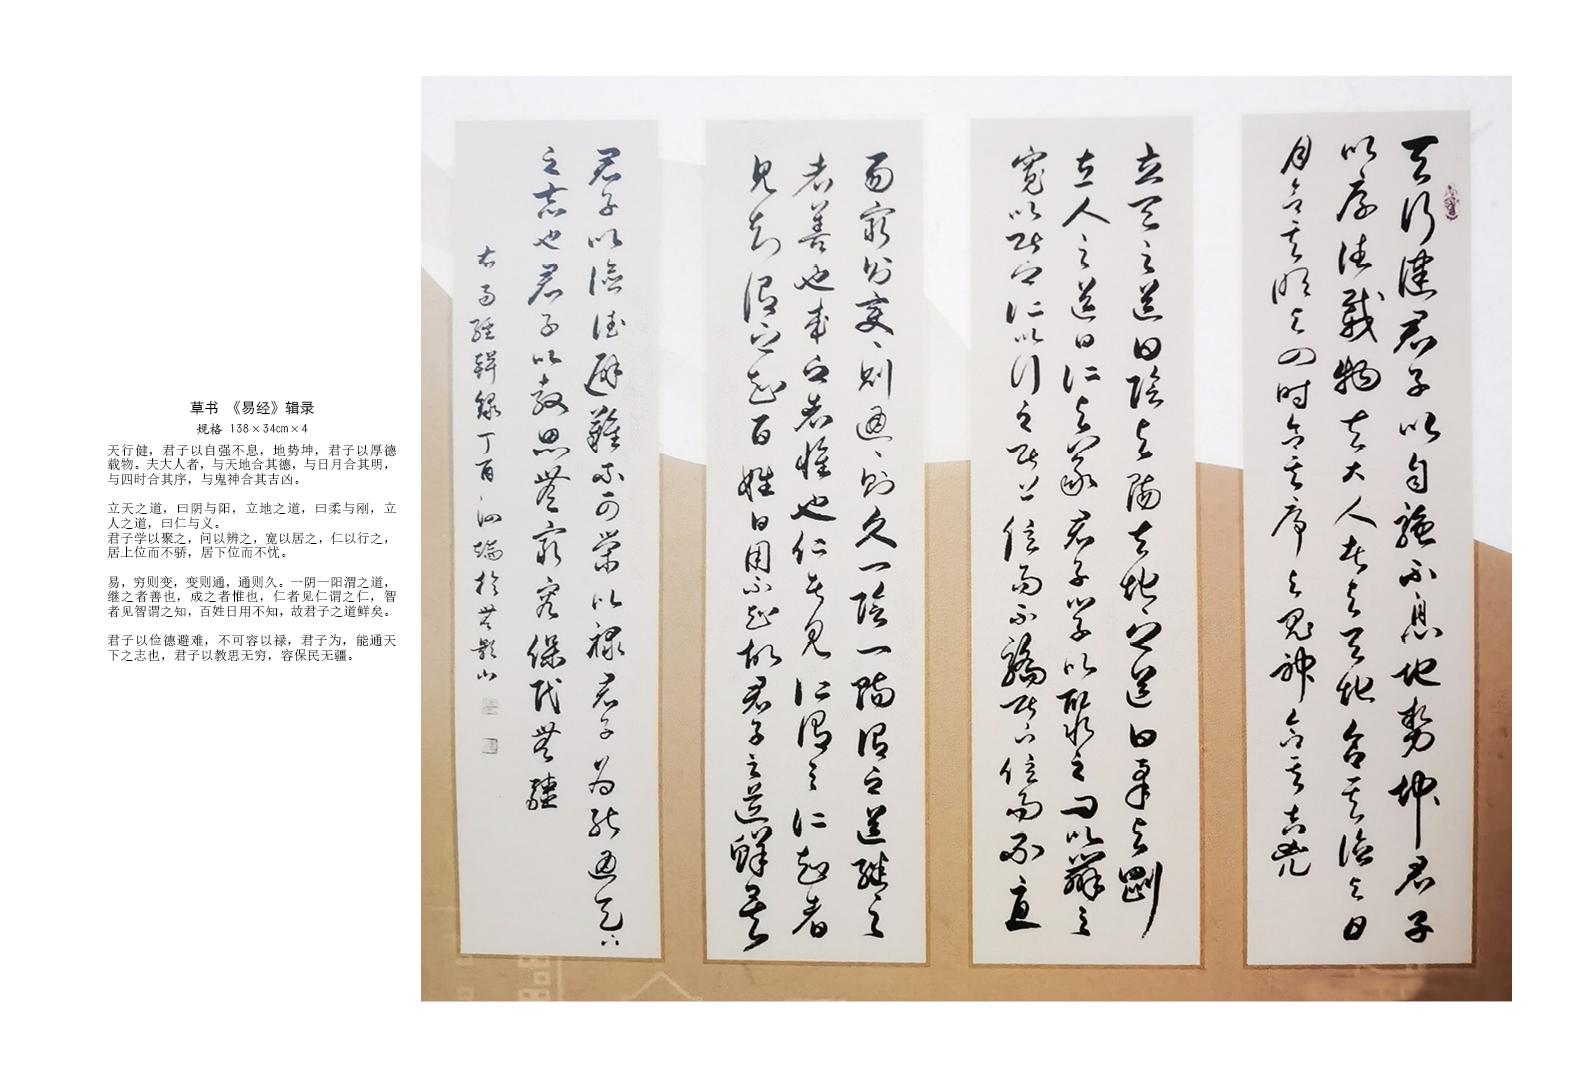 草书 《易经》辑录
规格 138×34cm×4
天行健，君子以自强不息，地势坤，君子以厚德
载物。夫大人者，与天地合其德，与日月合其明，
与四时合其序，与鬼神合其吉凶。
立天之道，曰阴与阳，立地之道，曰柔与刚，立
人之道，曰仁与义。
君子学以聚之，问以辨之，宽以居之，仁以行之，
居上位而不骄，居下位而不忧。
易，穷则变，变则通，通则久。一阴一阳渭之道，
继之者善也，成之者惟也，仁者见仁谓之仁，智
者见智谓之知，百姓日用不知，故君子之道鲜矣。
君子以俭德避难，不可容以禄，君子为，能通天
下之志也，君子以教思无穷，容保民无疆。
天行健君子以自强不息地势坤君子
以厚德载物夫大人者与天地合其德与日
月合其明与四时合其序与鬼神合其吉凶
立天之道曰陰与陽立地之道曰柔与剛
立人之道曰仁与义君子学以聚之问以辨之
寬以居之仁以行之居上位而不驕居下位而不
易窮则变变则通通则久一陰一陽謂之道继之
者善也成之者惟也仁者見仁謂之仁知者
見知謂之知百姓日用不知故君子之道鲜矣
君子以儉德避難不可榮以禄君子为能通天下
之志也君子以教思無窮容保民無疆
右易經輯錄丁酉